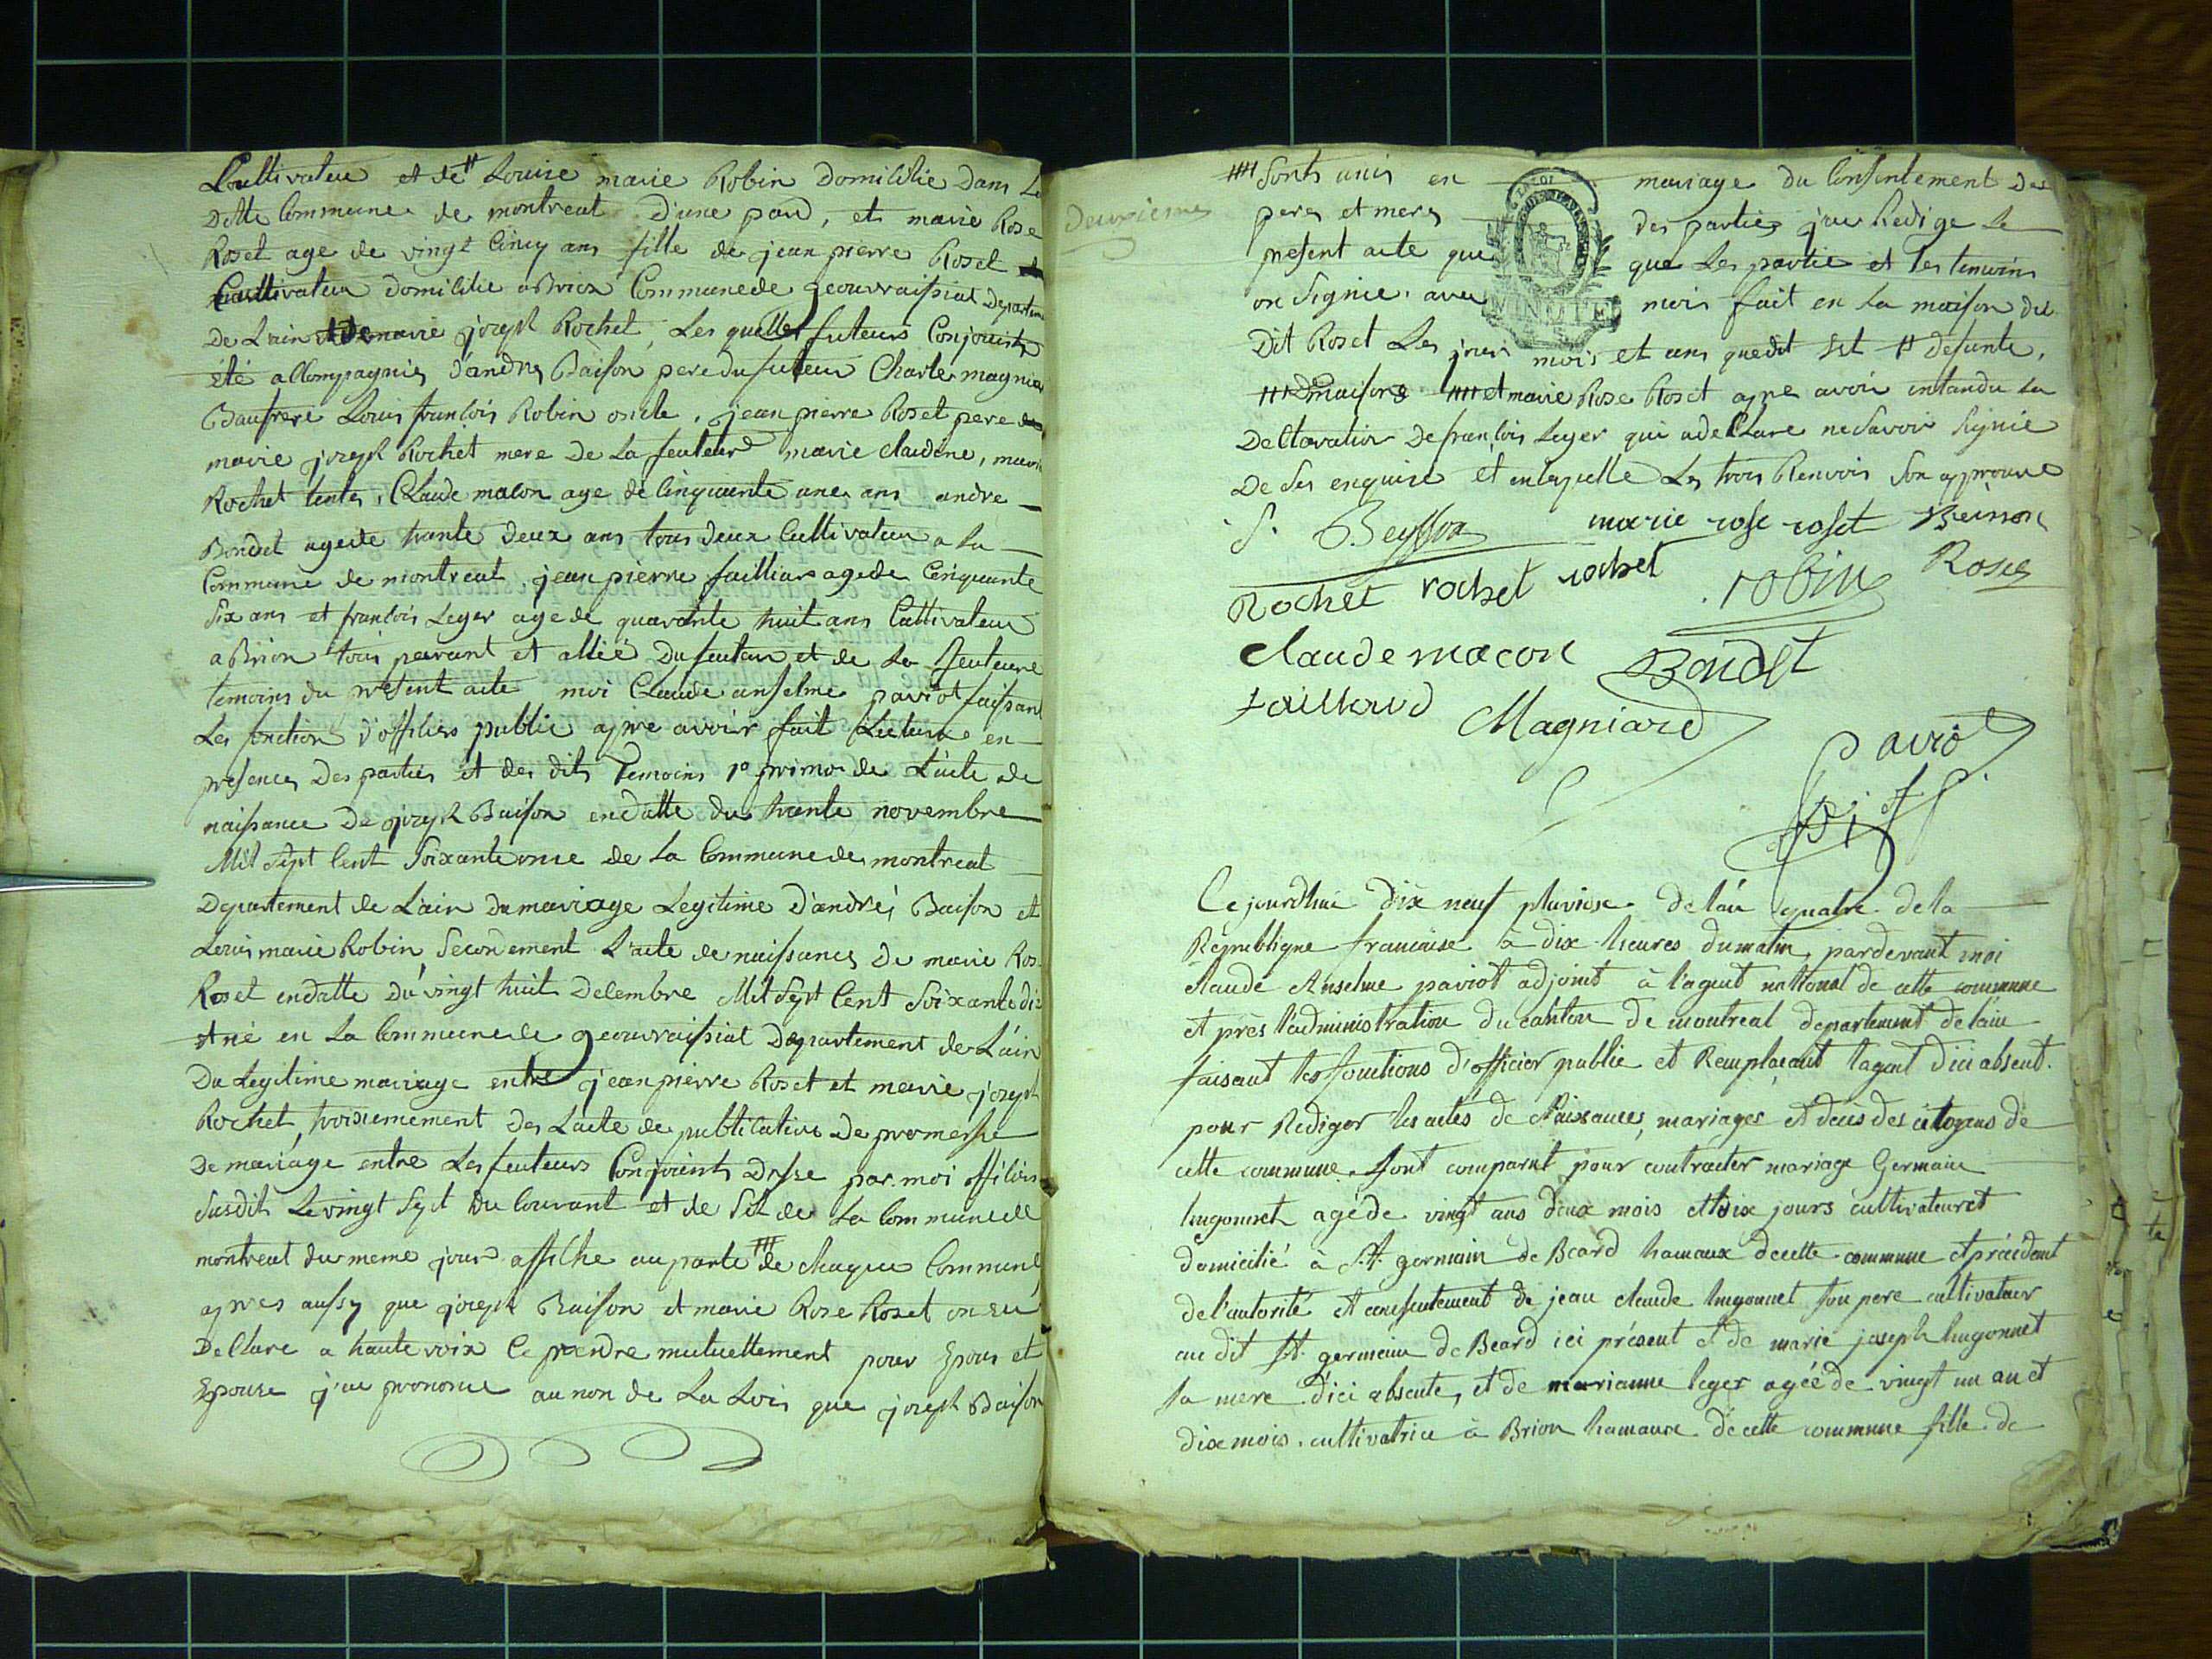 Cultivateur et de # Louise marie Robin domicilie dans la
ditte Commune de montreal d'une pard, et marie Rose
Roset age de vingt Cinq ans fille de jean pierre Roset et
Cultivateur domicilie a Brion Commune de geouvraissiat departem
de Lain et de marie joseph Rochet, Les quelles futeurs Conjoints
été accompagnies d'andres Baison pere du futeur Charle magniar
Baufrere Louis francois Robin oncle, jean pierre Roset pere
marie joseph Rochet mere de La feuteur marie claudine, marie
Rochet tentes, Claude macon age de cinquante une ans andre
Bondet agede trante deux ans tous deux Cultivateur a La
Commune de montreal, jean pierre failliars agede Cinquante
Six ans et francois Leger age de quarante huit ans Cultivateur
a Brion tous parant et allié du feuteur et de La feuteure
temoins du present acte moi Claude anselme paviot faissant
Les fonction d'officiers public apre avoir fait Lecture en
presences des parties et des dits temoins 1º primo de L'acte de
naissance de joseph Baison en datte du trente novembre
Mil Sept Cent Soixante onse de La Commune de montreal
Departement de L'ain du mariage Legitime d'andrés Baison et
Louis marie Robin, Secondement L'acte de naissances de marie Ros
Roset endatte du vingt huit decembre Mil Sept Cent Soixante di
et né en La Commune de geouvraissiat Departement de L'ain
Du Legitime mariage entre jean pierre Roset et marie joseph
Rochet, troisiemement des Lacte de publication de promesse
De mariage entre Les feuteurs Conjoints dresse par moi officier
Susdit Le vingt Sept du Courant et de Sit de La Commune de
montreal du meme jour affiche au parte ### de chaque Commune
apres aussy que joseph Baison et marie Rose Roset on eu
Declare a haute voix Ce prendre mutuellement pour Epous et
Epouse j'ae prononce au non de La Lois que joseph Baison
Deuxiemes
#### Sonts unis en mariage du Consentement des
peres et meres des parties j'ae Redige Le
present acte que que Les partie et Les temoins
on Signie. avec moi fait en La maison du
MINUTE
Dit Roset Les jours mois et ans quedit Est # defunte,
### maison #### et marie Rose Roset apre avoir entandu La
Declaration de francois Leger qui a declare ne Savoir Signie
De Ses enquire et en laquelle Les trois Renvois Son approuve
J. Beysson marie rose roset Beinson
Rochet rochet rochet robin Roset
Claude macon Bondet
failliard Magniard
paviot
adjt
Ce jourdhui dix neuf pluviose de l'an quatre de la
Republique francaise à dix heures du matin, pardevant moi
claude Anselme paviot adjoint à l'agent national de cette commune
et près l'administration du canton de montreal departement de l'ain
faisant les fonctions d'officier public et Remplacant l'agent d'ici absent.
pour Rediger les actes de Naixances, mariages et deces des citoyens de
cette commune. Sont comparut pour contracter mariage Germain
hugonnet agé de vingt ans deux mois et dix jours cultivateur et
domicilié à St. germain de Beard hamaux de cette commune et précedent
de l'autorité et consentement de jean claude hugonnet son pere cultivateur
au dit St. germain de Beard ici présent et de marie joseph hugonnet
sa mere d'ici absente, et de marianne leger agée de vingt un an et
dix mois. cultivatrice à Brion hamaux de cette commune fille de